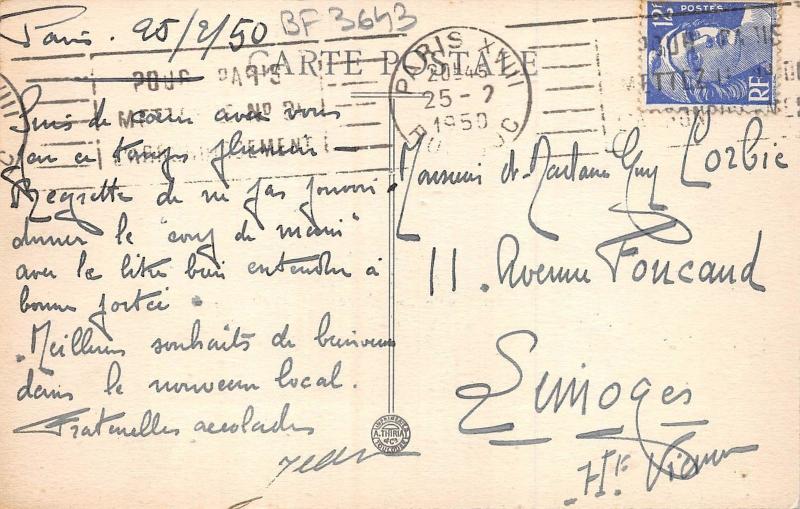 Paris. 25/2/50
BF 3643
CARTE POSTALE
POUR PARIS
METTEZ LE No DE
L'ARRONDISSEMENT
PARIS XVIII
20H45
25-2
1950
POSTES
12F
RF
Suis de cœur avec vous
en temps
Regrette de ne pas pouvoir
donner le "coup de main"
avec le litre bien entendu à
bonne portée.
Meilleurs souhaits de bienvenue
dans le nouveau local.
Fraternelles accolades
Jean
Monsieur et Madame Guy Corbie
11. Avenue Foucaud
Limoges
Hte Vienne
IMPRIMERIE
A. THIRIAT
& Cie
TOULOUSE